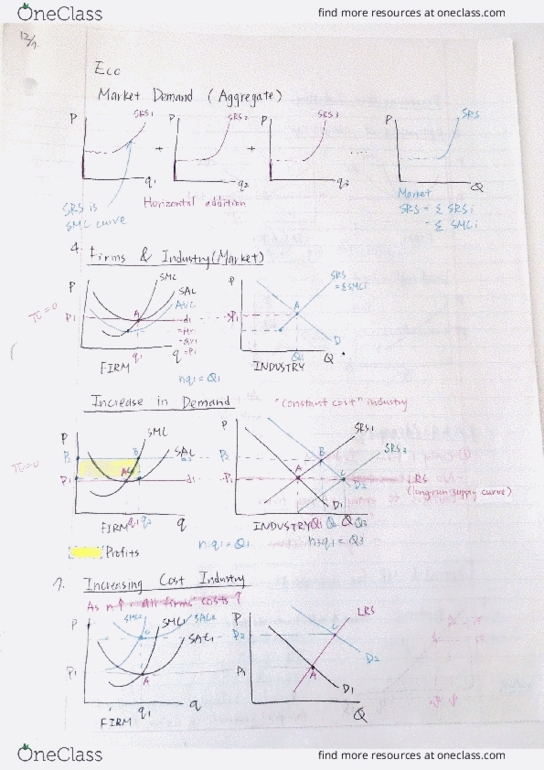 OneClass
find more resources at oneclass.com
12/7
Eco
Market Demand (Aggregate)
P SRS1 P SRS2 P SRS3 P SRS
+ + ...
q1 q2 q3 Q
SRS is
SMC curve
Horizontal addition
Market
SRS = Σ SRSi
= Σ SMCi
4. Firms & Industry (Market)
P SMC SAC AVC
π=0 P1 A d1
q1 q
= P1
FIRM
nq1 = Q1
P SRS
= ΣSMCi
P1 A D
Q1 Q
INDUSTRY
Increase in Demand "constant cost" industry
P SMC SAC
π=0 P2 B
P1 d1
FIRM q1 q2 q
Profits
n q1 = Q1
P SRS1 SRS2
P2 B
P1 A C D2 LRS
(long run supply curve)
D1
INDUSTRY Q1 Q2 Q3
n3q1 = Q3
7. Increasing Cost Industry
As n↑ all firms' costs ↑
P SMC2 SMC1 SAC2 SAC1
P1 A
FIRM q1 q
P LRS
P2 C D2
P1 A D1
Q
OneClass
find more resources at oneclass.com